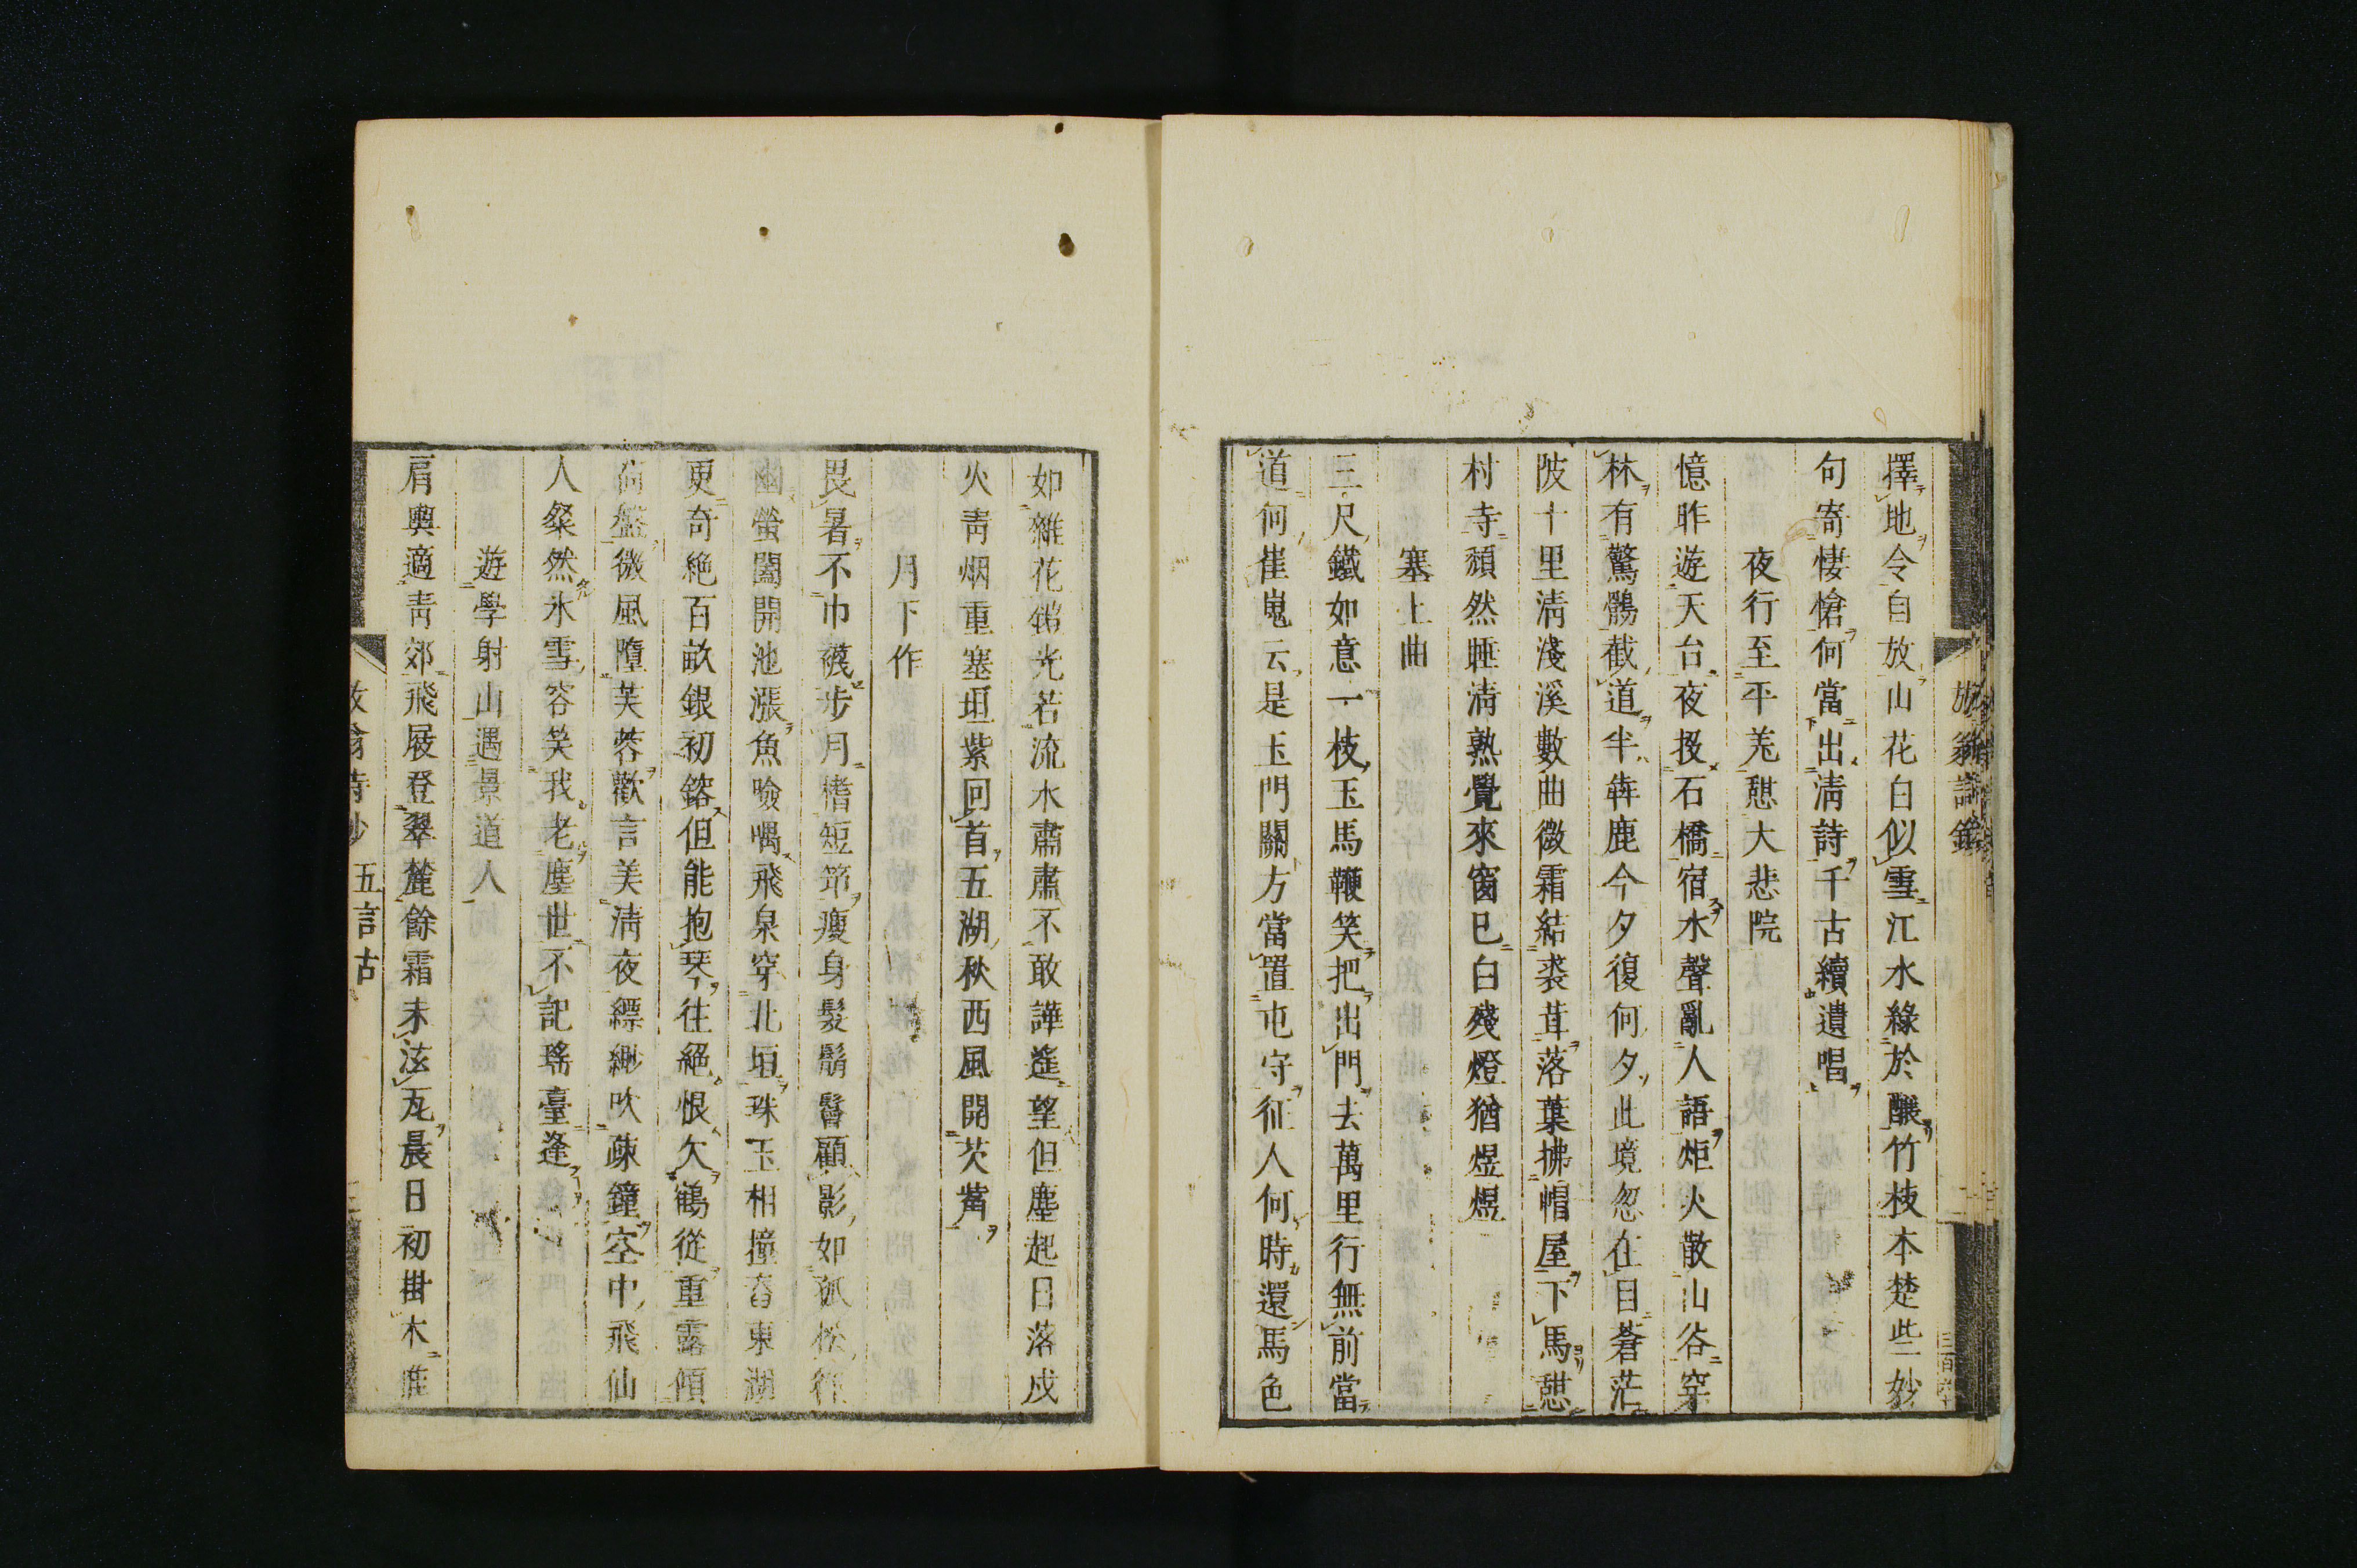 擇地令自放山花白似雪江水綠於釀竹枝本楚些妙
句寄悽愴何當出淸詩千古續遺唱
夜行至平羌憩大悲院
憶昨遊天台夜投石橋宿水聲亂人語炬火散山谷穿
林有驚鶻截道半犇鹿今夕復何夕此境忽在目蒼茫
陂十里淸淺溪數曲微霜結裘茸落葉拂帽屋下馬憩
村寺頹然睡淸熟覺來窗已白殘燈猶煜煜
塞上曲
三尺鐵如意一枝玉馬鞭笑把出門去萬里行無前當
道何崔嵬云是玉門關方當置屯守征人何時還馬色
如雜花鎧光若流水肅肅不敢譁遙望但塵起日落戍
火靑烟重塞垣紫回首五湖秋西風開芡觜
月下作
畏暑不巾襪步月榰短筇瘦身髮鬅鬙顧影如孤松徘
幽螢闔開池漲魚噞喁飛泉穿北垣珠玉相撞舂東湖
更奇絶百畝銀初鎔但能抱琴往絕恨欠鶴從重露傾
荷盤微風墮芙蓉歡言美淸夜縹緲吹疎鐘空中飛仙
人粲然氷雪容笑我老塵世不記瑤臺逢
遊學射山遇景道人
肩輿適靑郊飛屐登翠麓餘霜未泫瓦晨日初掛木
放翁詩鈔 五言古